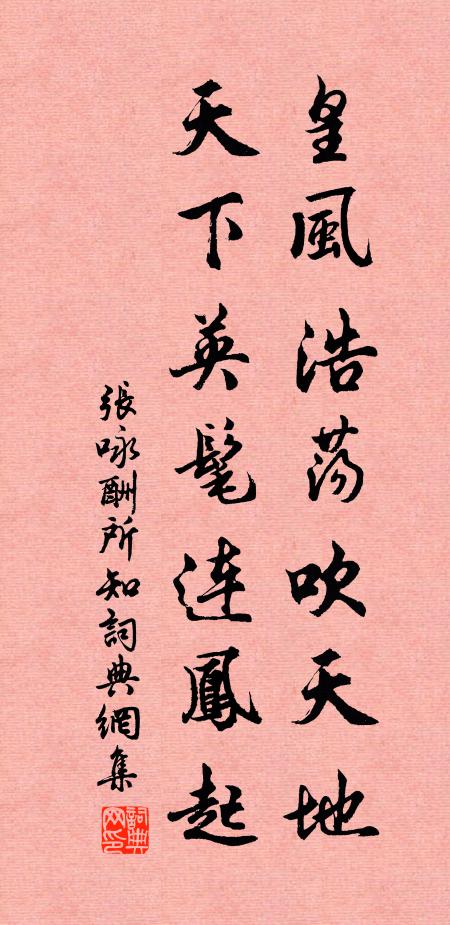 皇風浩蕩吹天地
天下英髦連鳳起
張咏酬所知詞典網集
詞典網印